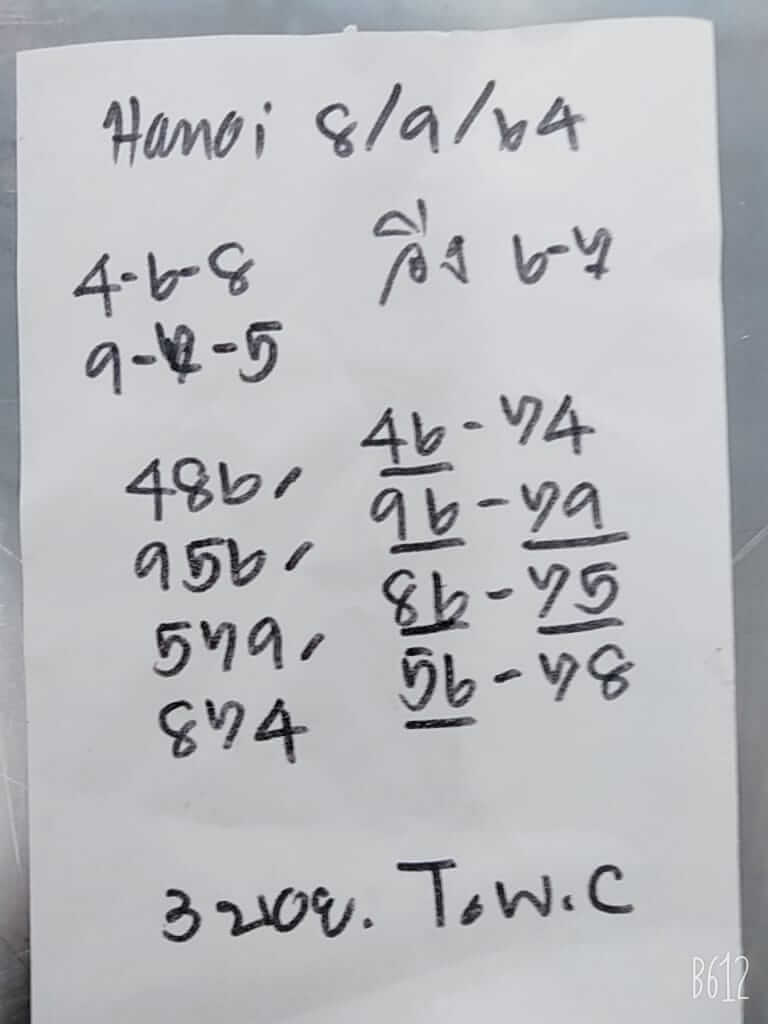 Hanoi 8/9/64
4-6-8 วิ่ง 6-7
9-7-5
486, 46-74
956, 96-79
579, 86-75
874 56-78
3 นอย. T.W.C
B612